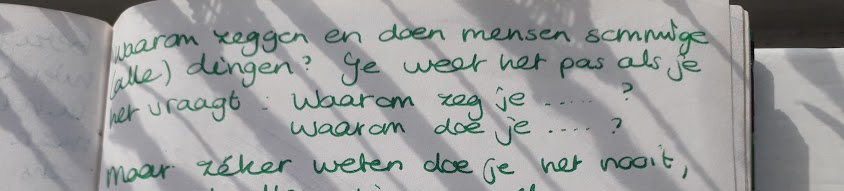 waarom zeggen en doen mensen sommige
(alle) dingen? Je weet het pas als je
het vraagt : waarom zeg je ..... ?
waarom doe je .... ?
maar zéker weten doe je het nooit,